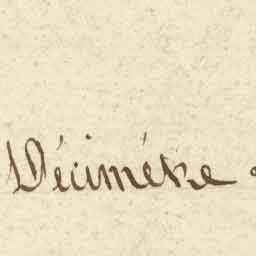 Décimètre.